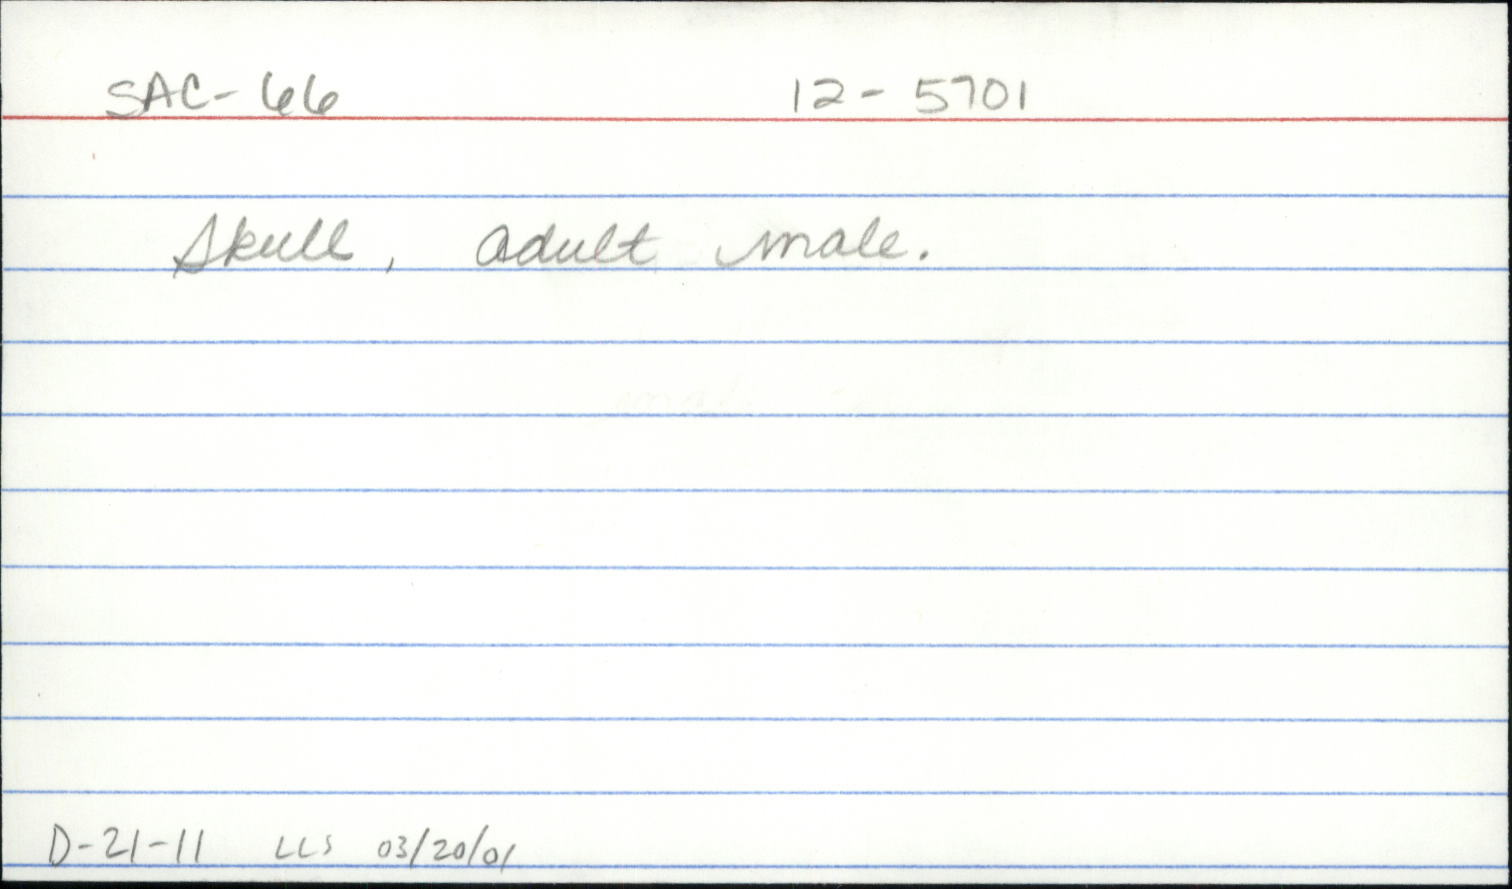 SAC-66 12-5701
Skull, adult male.
D-21-11 LLS 03/20/01